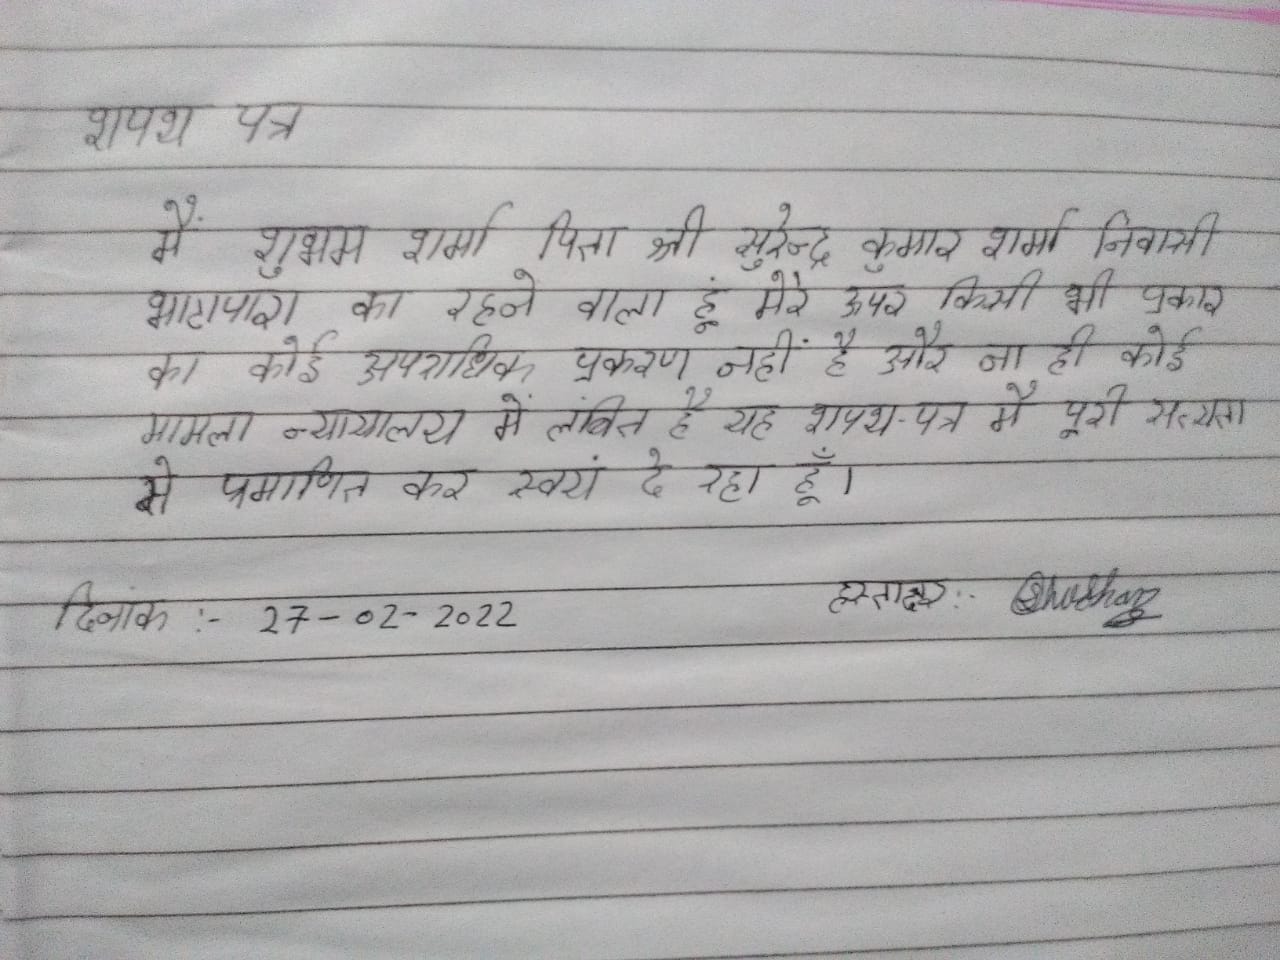 शपथ पत्र
मैं शुभम शर्मा पिता श्री सुरेन्द्र कुमार शर्मा निवासी
भाटापारा का रहने वाला हूं मेरे ऊपर किसी भी प्रकार
का कोई अपराधिक प्रकरण नहीं है और ना ही कोई
मामला न्यायालय में लंबित है यह शपथ-पत्र मै पूरी सत्यता
से प्रमाणित कर स्वयं दे रहा हूँ।
दिनांक :- 27-02-2022 हस्ताक्षर :-